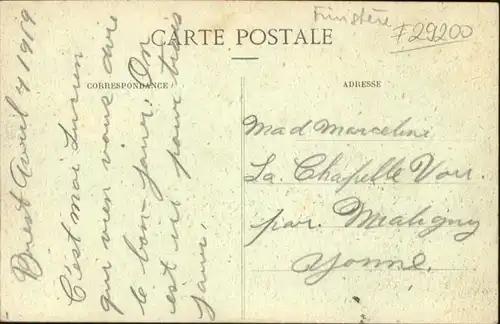 Finistère
F29200
CARTE POSTALE
CORRESPONDANCE
ADRESSE
Brest Avril 4 1919
C'est moi Lucien
qui vien vous dire
le bon-jour. On
est ici pour trois
jours.
Mad Marceline
La Chapelle Vau.
par. Maligny
Yonne.